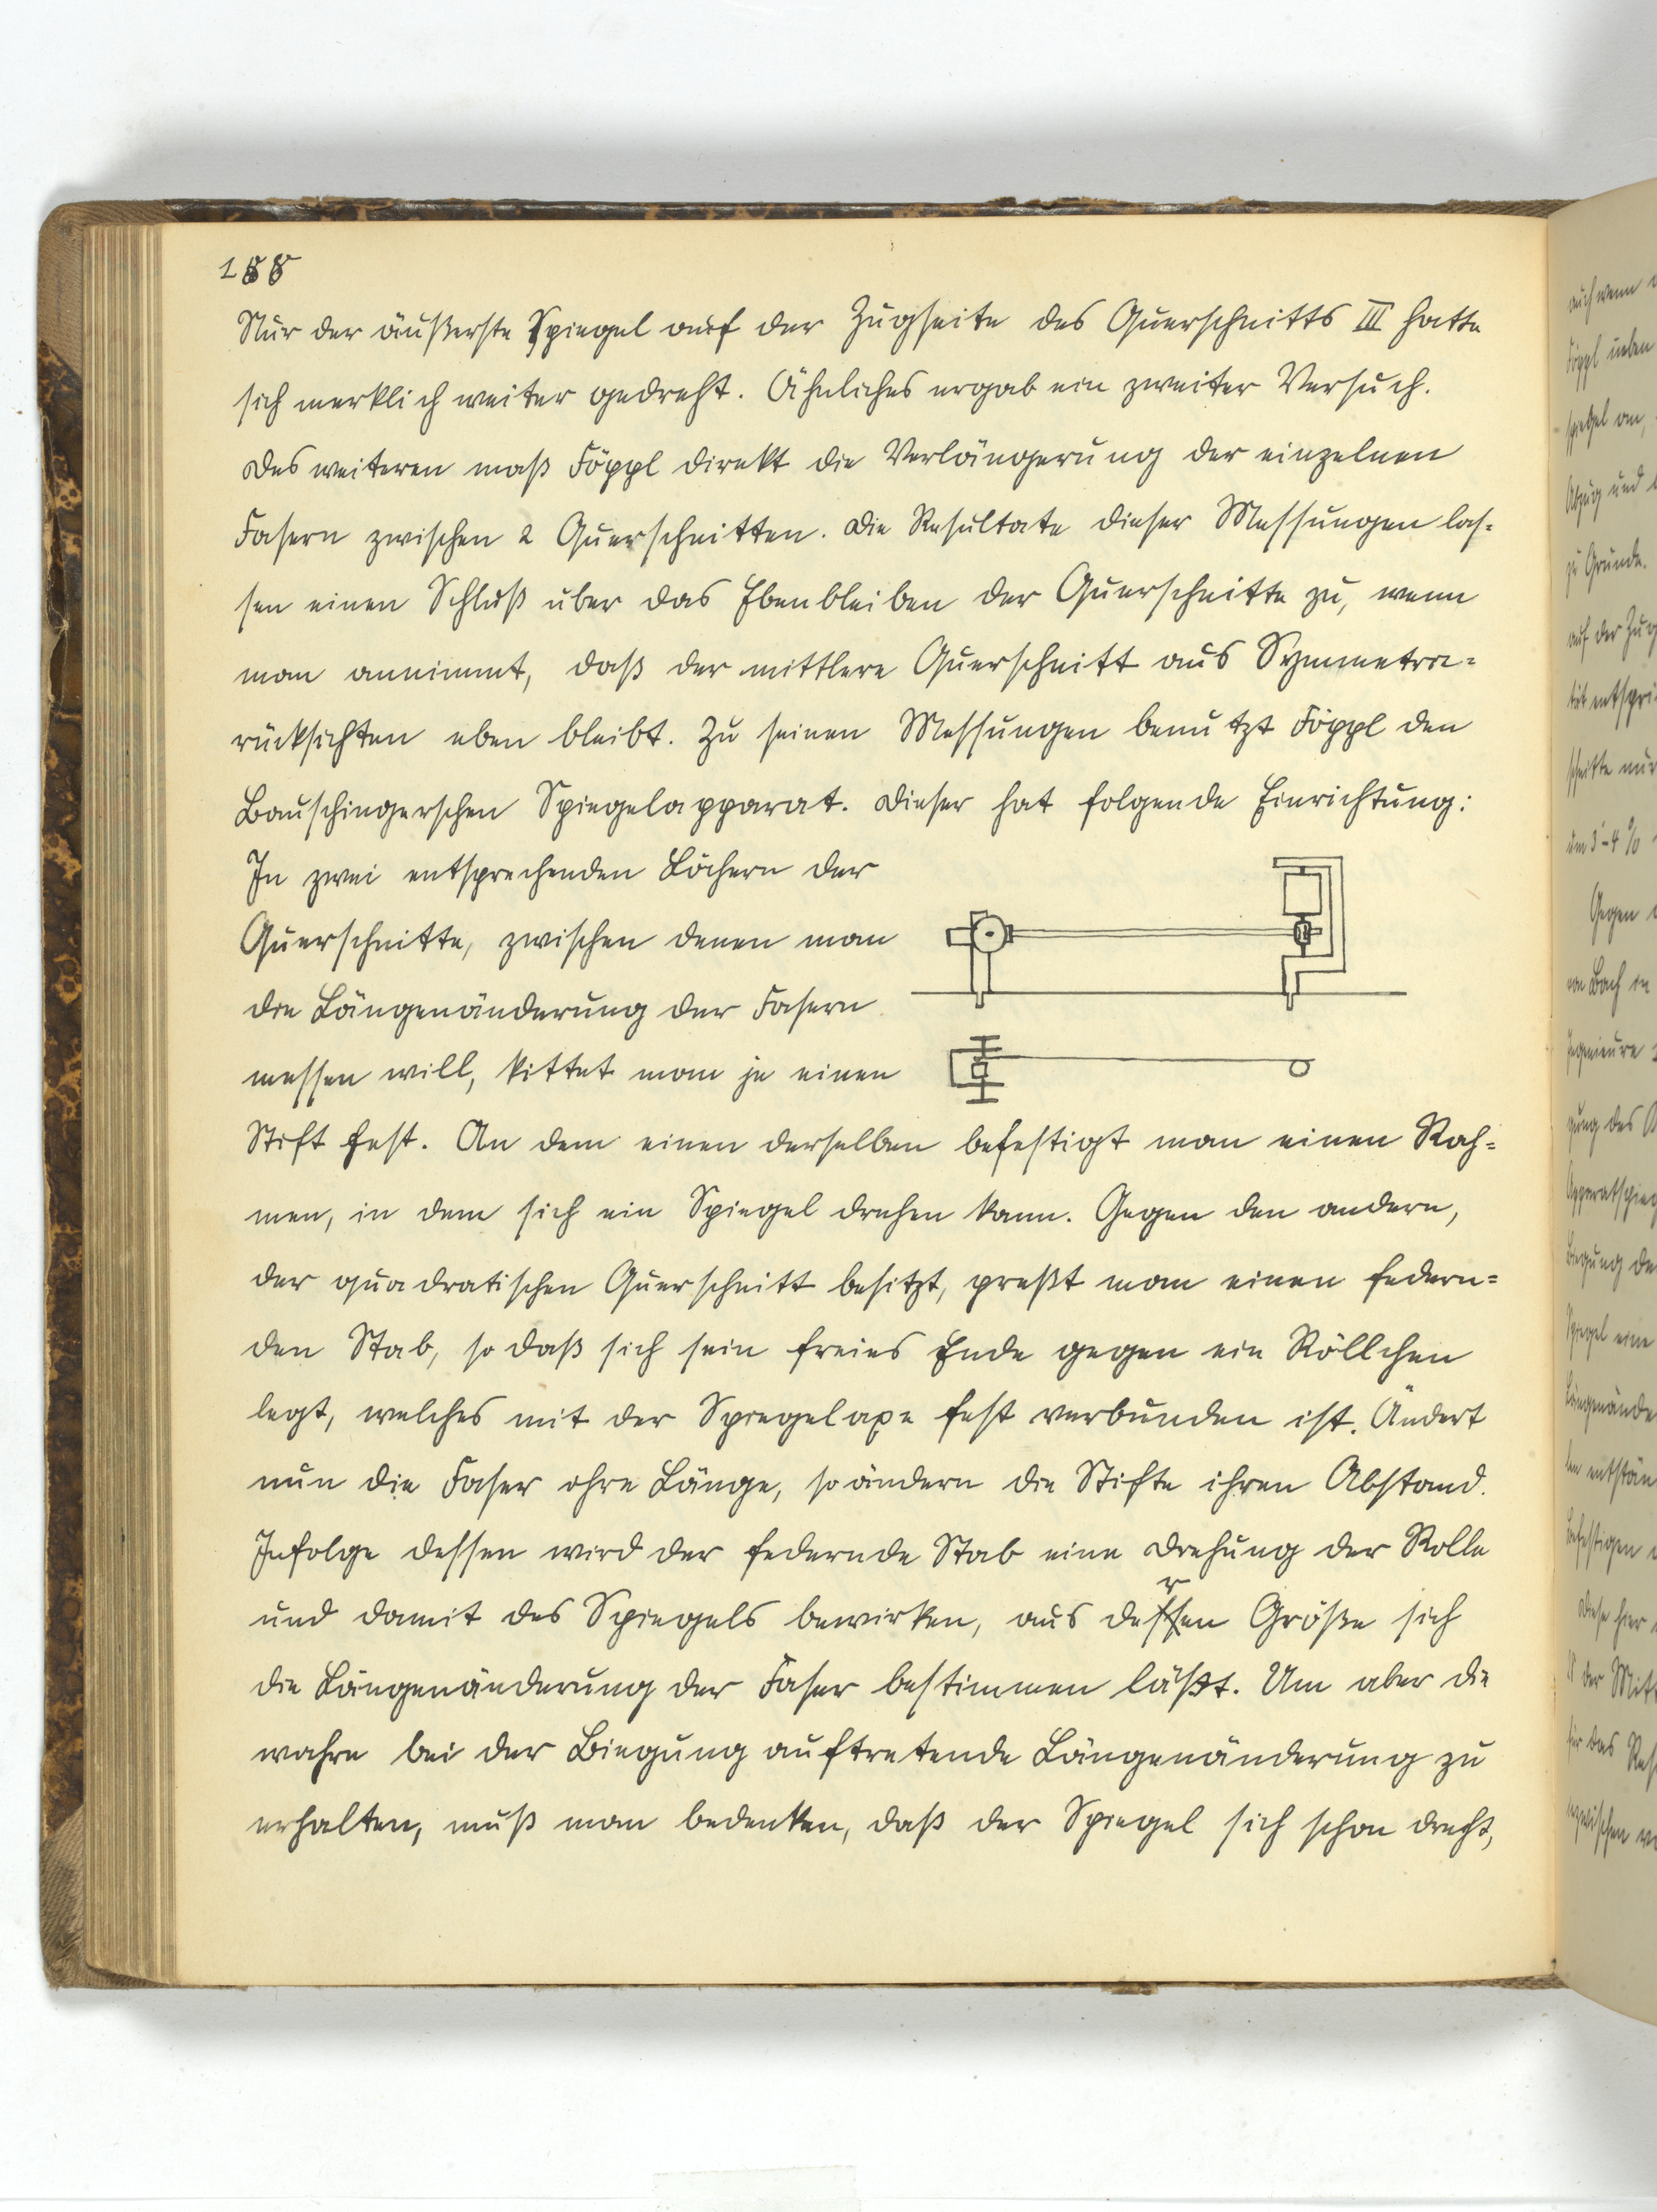 188
Nur der äußerste Spiegel auf der Zugseite des Querschnitts III hatte
sich merklich weiter gedreht. Ähnliches ergab ein zweiter Versuch.
Des weiteren maß Föppl direkt die Verlängerung der einzelnen
Fasern zwischen 2 Querschnitten. Die Resultate dieser Messungen las-
sen einen Schluß über das Ebenbleiben der Querschnitte zu, wenn
man annimmt, daß der mittlere Querschnitt aus Symmetrie-
rücksichten eben bleibt. Zu seinen Messungen benutzt Föppl den
Bauschingerschen Spiegelapparat. Dieser hat folgende Einrichtung:
In zwei entsprechenden Löchern der
Querschnitte, zwischen denen man
die Längenänderung der Fasern
messen will, kittet man je einen
Stift fest. An dem einen derselben befestigt man einen Rah-
men, in dem sich ein Spiegel drehen kann. Gegen den andern,
der quadratischen Querschnitt besitzt, preßt man einen federn-
den Stab, so daß sich sein freies Ende gegen ein Röllchen
legt, welches mit der Spiegelaxe fest verbunden ist. Ändert
nun die Faser ihre Länge, so ändern die Stifte ihren Abstand.
Infolge dessen wird der federnde Stab eine Drehung der Rolle
und damit des Spiegels bewirken, aus deren Größe sich
die Längenänderung der Faser bestimmen läßt. Um aber die
wahre bei der Biegung auftretende Längenänderung zu
erhalten, muß man bedenken, daß der Spiegel sich schon dreht,
auch wenn
Föppl
spiegel an,
Abzug und
zu Grunde.
auf der Zug
schnitte nur
um 3-4 %
Gegen
von Bach in
Ingenieure
gung des
Biegung de
Spiegel eine
Längenände
befestigen
Diese hier
der Mitt
für das Res